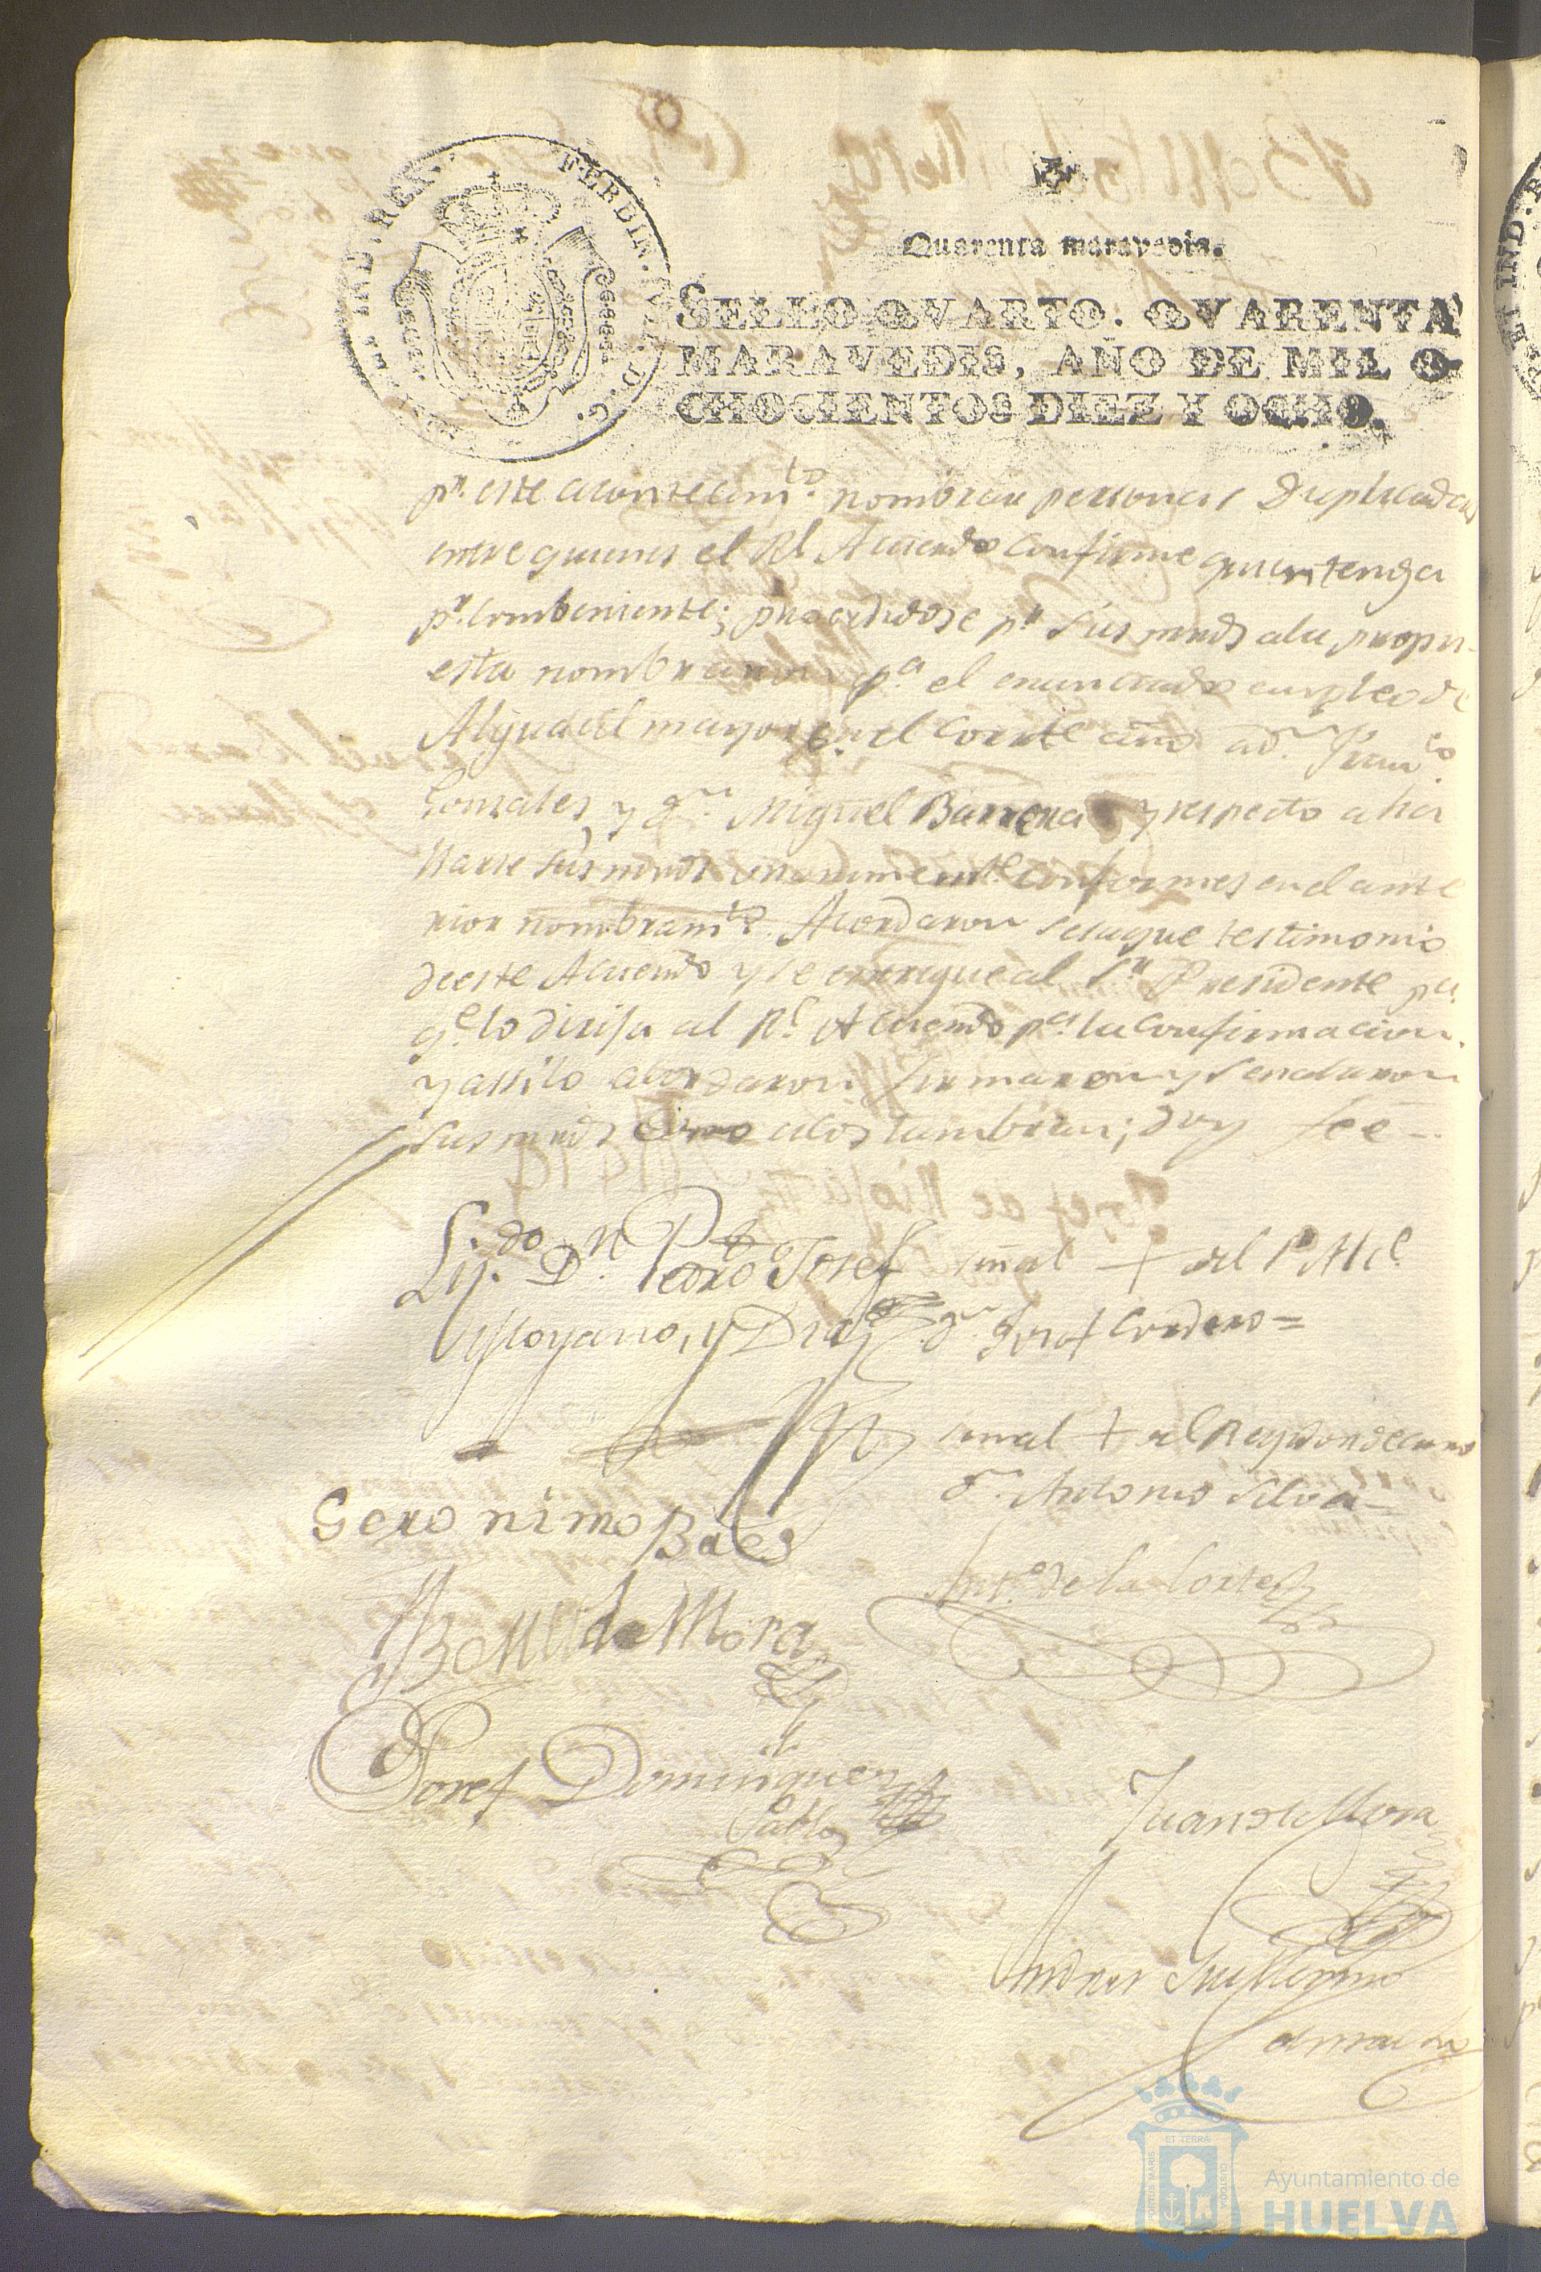 FERDIN. VII. D. G.
ET IND. REX.
Quarenta maravedis.
SELLO QVARTO. QVARENTA
MARAVEDIS, AÑO DE MIL O-
CHOCIENTOS DIEZ Y OCHO.
pr. este acontecimto. nombrar personas Duplicadas
entre quienes el Rl. Acuerdo confirme quien tenga
pr. combeniente; procedidose pr. sus mrds ala propu-
esta nombraron pa. el enunciado empleo de
Alguacil mayor en el corrte año a dn. Franco.
Gonzales, y dn. Miguel Barrera y respecto a ha
llarse sus mrds unanimemte. conformes en el ante
rior nombramto. Acordaron se saque testimonio
de este Acuerdo y se entregue al Sr. Presidente pa.
qe. lo dirija al Rl. Acuerdo pa. la confirmacion.
y assi lo acordaron firmaron y señalaron
sus mrds como acostumbran; doy fee=
Lizdo. Dn. Pedro Josef
Moyano, y Diaz
señal + del Sr. Alce.
dn. Josef Cordero=
señal + del Regidor decano
dn. Antonio Silva=
Geronimo Baes
Anto. de la Corte
de Mora
Josef Dominguez
Pablo
Juan de Mora
Andres Guillermo
Camacho
PORTUS MARIS
ET TERRA
CUSTODIA
Ayuntamiento de
HUELVA